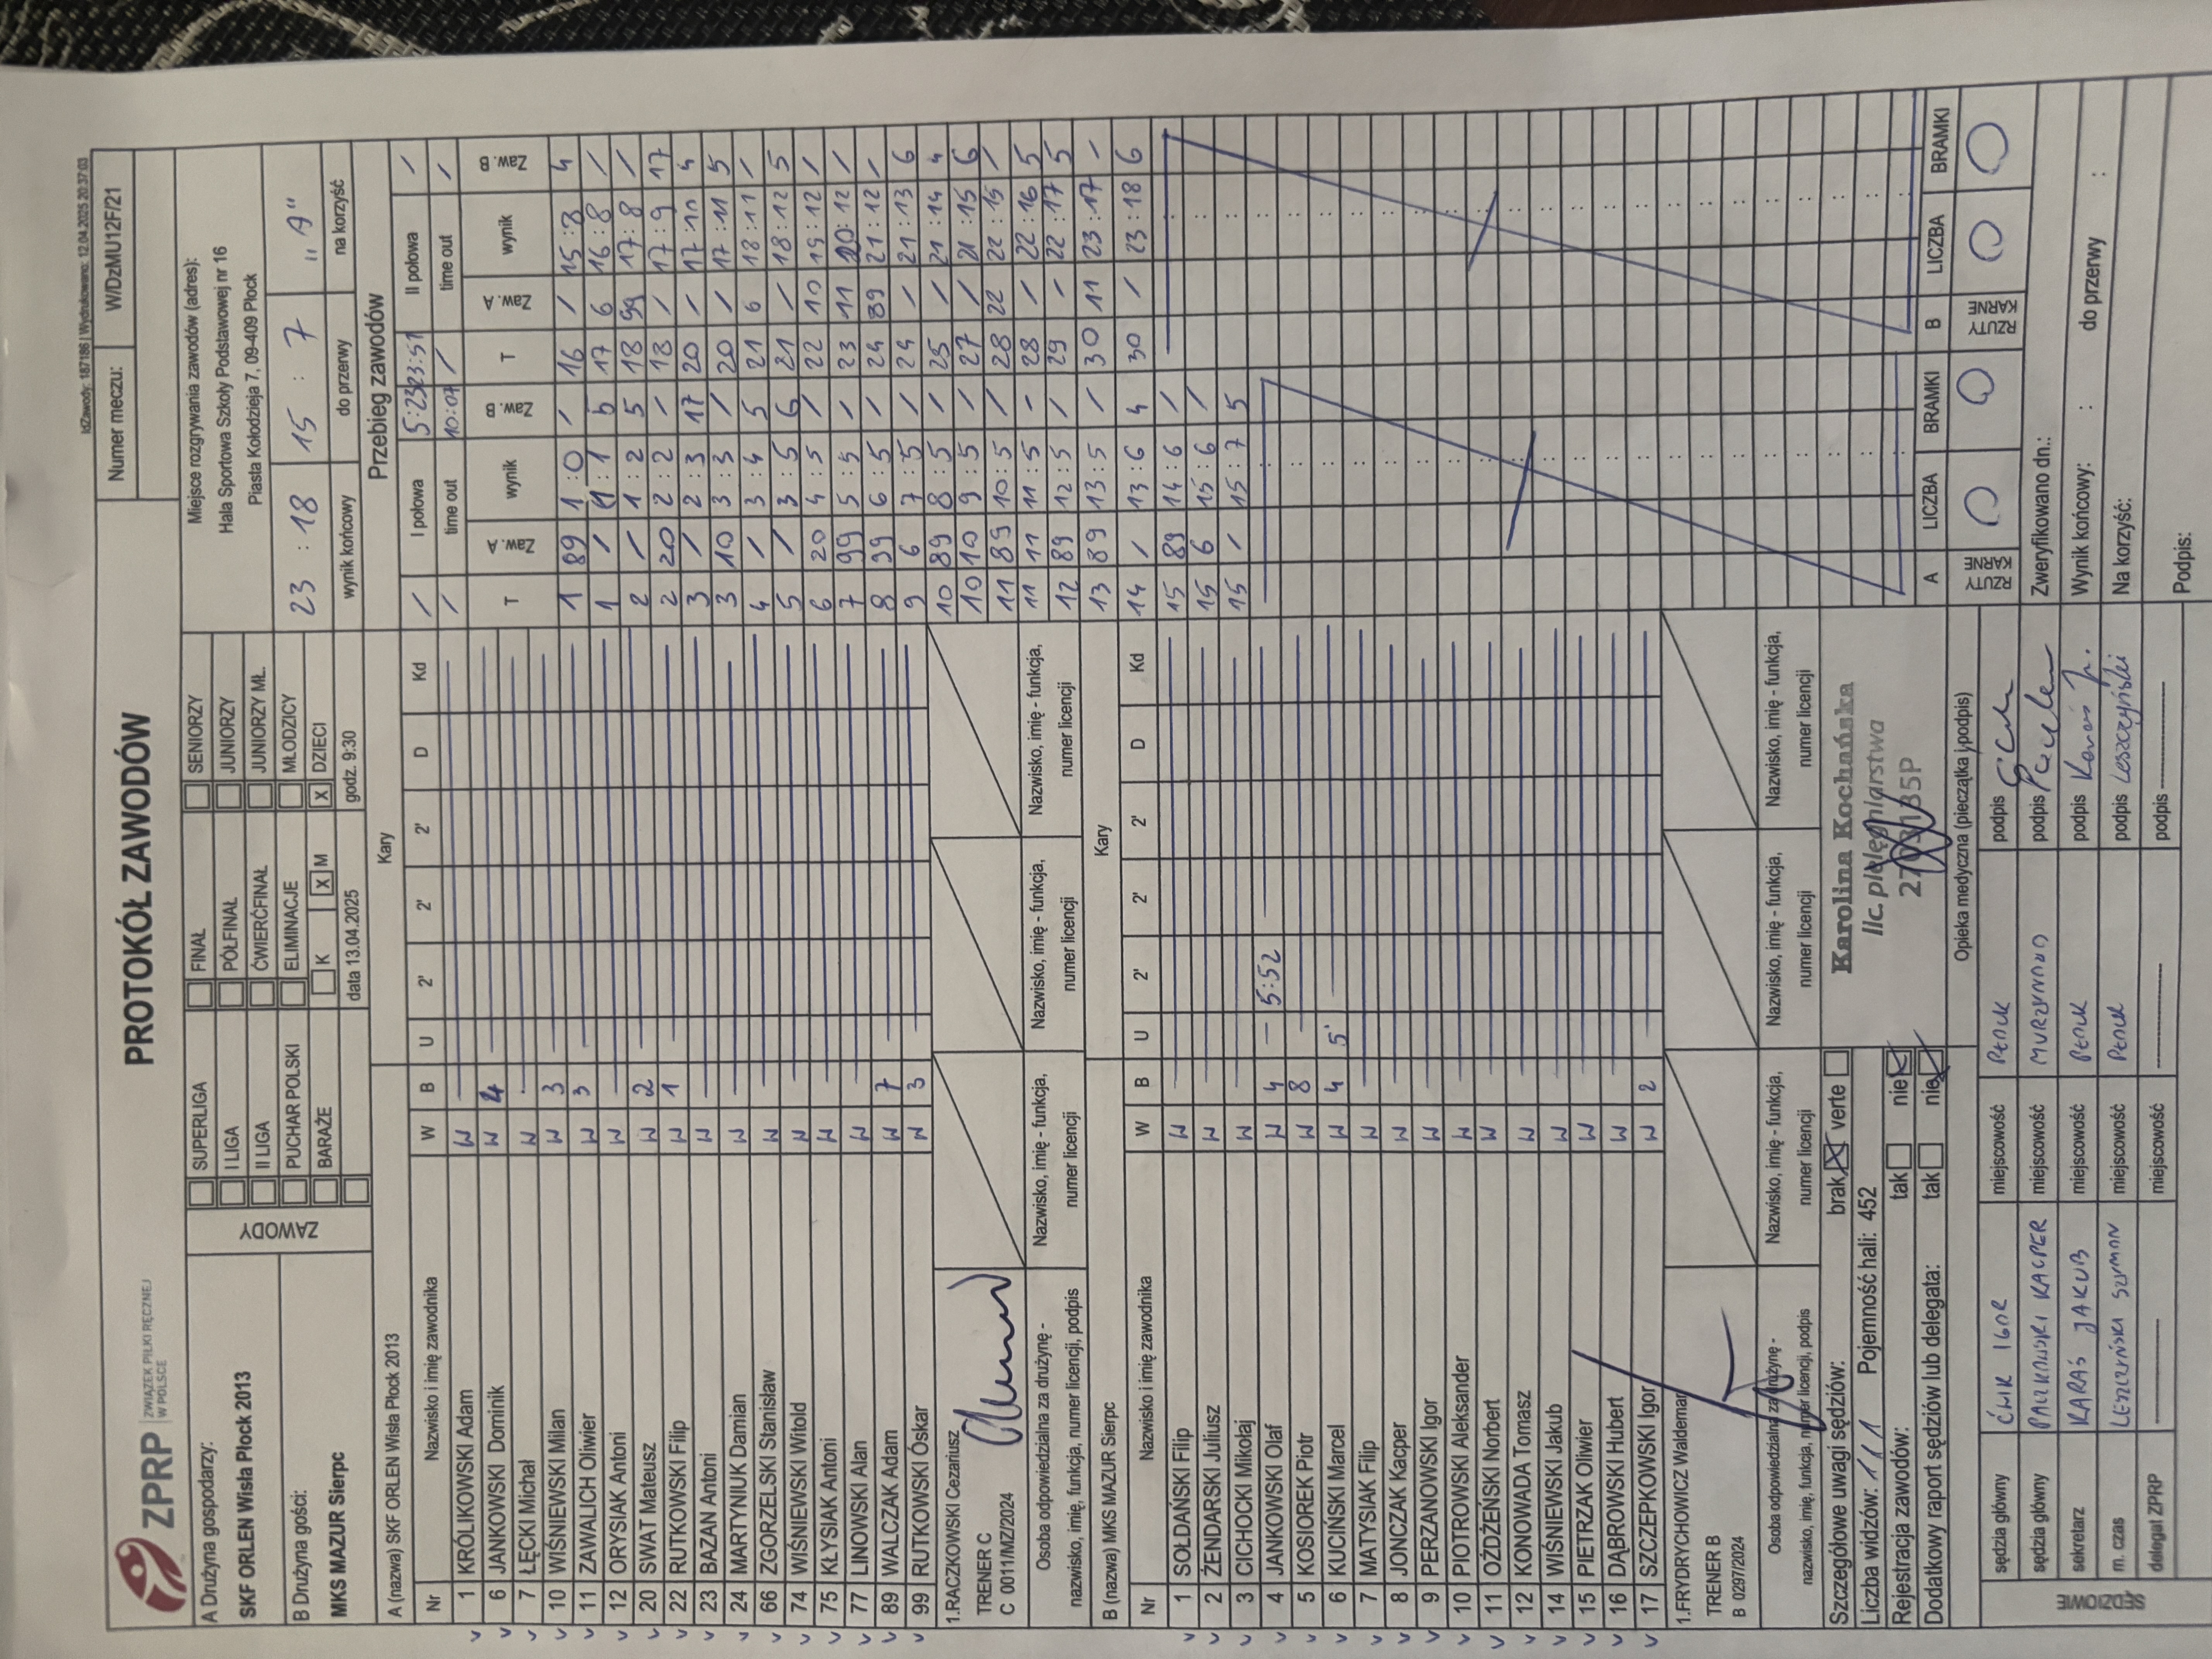 IdZawody: 187186 | Wydrukowano: 12.04.2025 20:37:03
ZPRP ZWIĄZEK PIŁKI RĘCZNEJ W POLSCE
PROTOKÓŁ ZAWODÓW
Numer meczu: W/DzMU12F/21
A Drużyna gospodarzy:
SKF ORLEN Wisła Płock 2013
B Drużyna gości:
MKS MAZUR Sierpc
ZAWODY
SUPERLIGA
I LIGA
II LIGA
PUCHAR POLSKI
BARAŻE
FINAŁ
PÓŁFINAŁ
ĆWIERĆFINAŁ
ELIMINACJE
K X M
data 13.04.2025
SENIORZY
JUNIORZY
JUNIORZY MŁ.
MŁODZICY
X DZIECI
godz. 9:30
Miejsce rozgrywania zawodów (adres):
Hala Sportowa Szkoły Podstawowej nr 16
Piasta Kołodzieja 7, 09-409 Płock
23 : 18 15 : 7 "A"
wynik końcowy do przerwy na korzyść
A (nazwa) SKF ORLEN Wisła Płock 2013 Kary
Nr Nazwisko i imię zawodnika W B U 2' 2' 2' D Kd
1 KRÓLIKOWSKI Adam W
6 JANKOWSKI Dominik W 4
7 ŁĘCKI Michał W
10 WIŚNIEWSKI Milan W 3
11 ZAWALICH Oliwier W 3
12 ORYSIAK Antoni W
20 SWAT Mateusz W 2
22 RUTKOWSKI Filip W 1
23 BAZAN Antoni W
24 MARTYNIUK Damian W
66 ZGORZELSKI Stanisław W
74 WIŚNIEWSKI Witold W
75 KŁYSIAK Antoni W
77 LINOWSKI Alan W
89 WALCZAK Adam W 7
99 RUTKOWSKI Oskar W 3
1.RACZKOWSKI Cezariusz
TRENER C
C 0011/MZ/2024
Osoba odpowiedzialna za drużynę -
nazwisko, imię, funkcja, numer licencji, podpis
Nazwisko, imię - funkcja,
numer licencji
Nazwisko, imię - funkcja,
numer licencji
Nazwisko, imię - funkcja,
numer licencji
B (nazwa) MKS MAZUR Sierpc Kary
Nr Nazwisko i imię zawodnika W B U 2' 2' 2' D Kd
1 SOŁDAŃSKI Filip W
2 ŻENDARSKI Juliusz W
3 CICHOCKI Mikołaj W
4 JANKOWSKI Olaf W 4 5:52
5 KOSIOREK Piotr W 8
6 KUCIŃSKI Marcel W 4 5'
7 MATYSIAK Filip W
8 JONCZAK Kacper W
9 PERZANOWSKI Igor W
10 PIOTROWSKI Aleksander W
11 OŹDŹEŃSKI Norbert W
12 KONOWADA Tomasz W
14 WIŚNIEWSKI Jakub W
15 PIETRZAK Oliwier W
16 DĄBROWSKI Hubert W
17 SZCZEPKOWSKI Igor W 2
1.FRYDRYCHOWICZ Waldemar
TRENER B
B 0297/2024
Osoba odpowiedzialna za drużynę -
nazwisko, imię, funkcja, numer licencji, podpis
Nazwisko, imię - funkcja,
numer licencji
Nazwisko, imię - funkcja,
numer licencji
Nazwisko, imię - funkcja,
numer licencji
Przebieg zawodów
/ I połowa 5:23 23:51 II połowa /
/ time out 10:07 / time out /
T Zaw. A wynik Zaw. B T Zaw. A wynik Zaw. B
1 89 1:0 / 16 / 15:8 4
1 / 1:1 5 17 6 16:8 /
2 / 1:2 5 18 99 17:8 /
2 20 2:2 / 18 / 17:9 17
3 / 2:3 17 20 / 17:10 4
3 10 3:3 / 20 / 17:11 5
4 / 3:4 5 21 6 18:11 /
5 / 3:5 6 21 / 18:12 5
6 20 4:5 / 22 10 19:12 /
7 99 5:5 / 23 11 20:12 /
8 99 6:5 / 24 89 21:12 /
9 6 7:5 / 24 / 21:13 6
10 89 8:5 / 25 / 21:14 4
10 10 9:5 / 27 / 21:15 6
11 89 10:5 / 28 22 22:15 /
11 11 11:5 - 28 / 22:16 5
12 89 12:5 / 29 - 22:17 5
13 89 13:5 / 30 11 23:17 -
14 / 13:6 4 30 / 23:18 6
15 89 14:6 /
15 6 15:6 /
15 / 15:7 5
RZUTY KARNE A LICZBA BRAMKI RZUTY KARNE B LICZBA BRAMKI
0 0 0 0
Szczegółowe uwagi sędziów: brak verte
Liczba widzów: 111 Pojemność hali: 452
Rejestracja zawodów: tak nie
Dodatkowy raport sędziów lub delegata: tak nie
Karolina Kochańska
lic. pielęgniarstwa
Opieka medyczna (pieczątka i podpis)
SĘDZIOWIE
sędzia główny ĆWIK IGOR miejscowość PŁOCK podpis
sędzia główny miejscowość MURZYNOWO podpis
sekretarz KARAŚ JAKUB miejscowość PŁOCK podpis Karaś J.
m. czas LESZCZYŃSKI SZYMON miejscowość PŁOCK podpis Leszczyński
delegat ZPRP miejscowość podpis
Zweryfikowano dn.:
Wynik końcowy: : do przerwy :
Na korzyść:
Podpis: